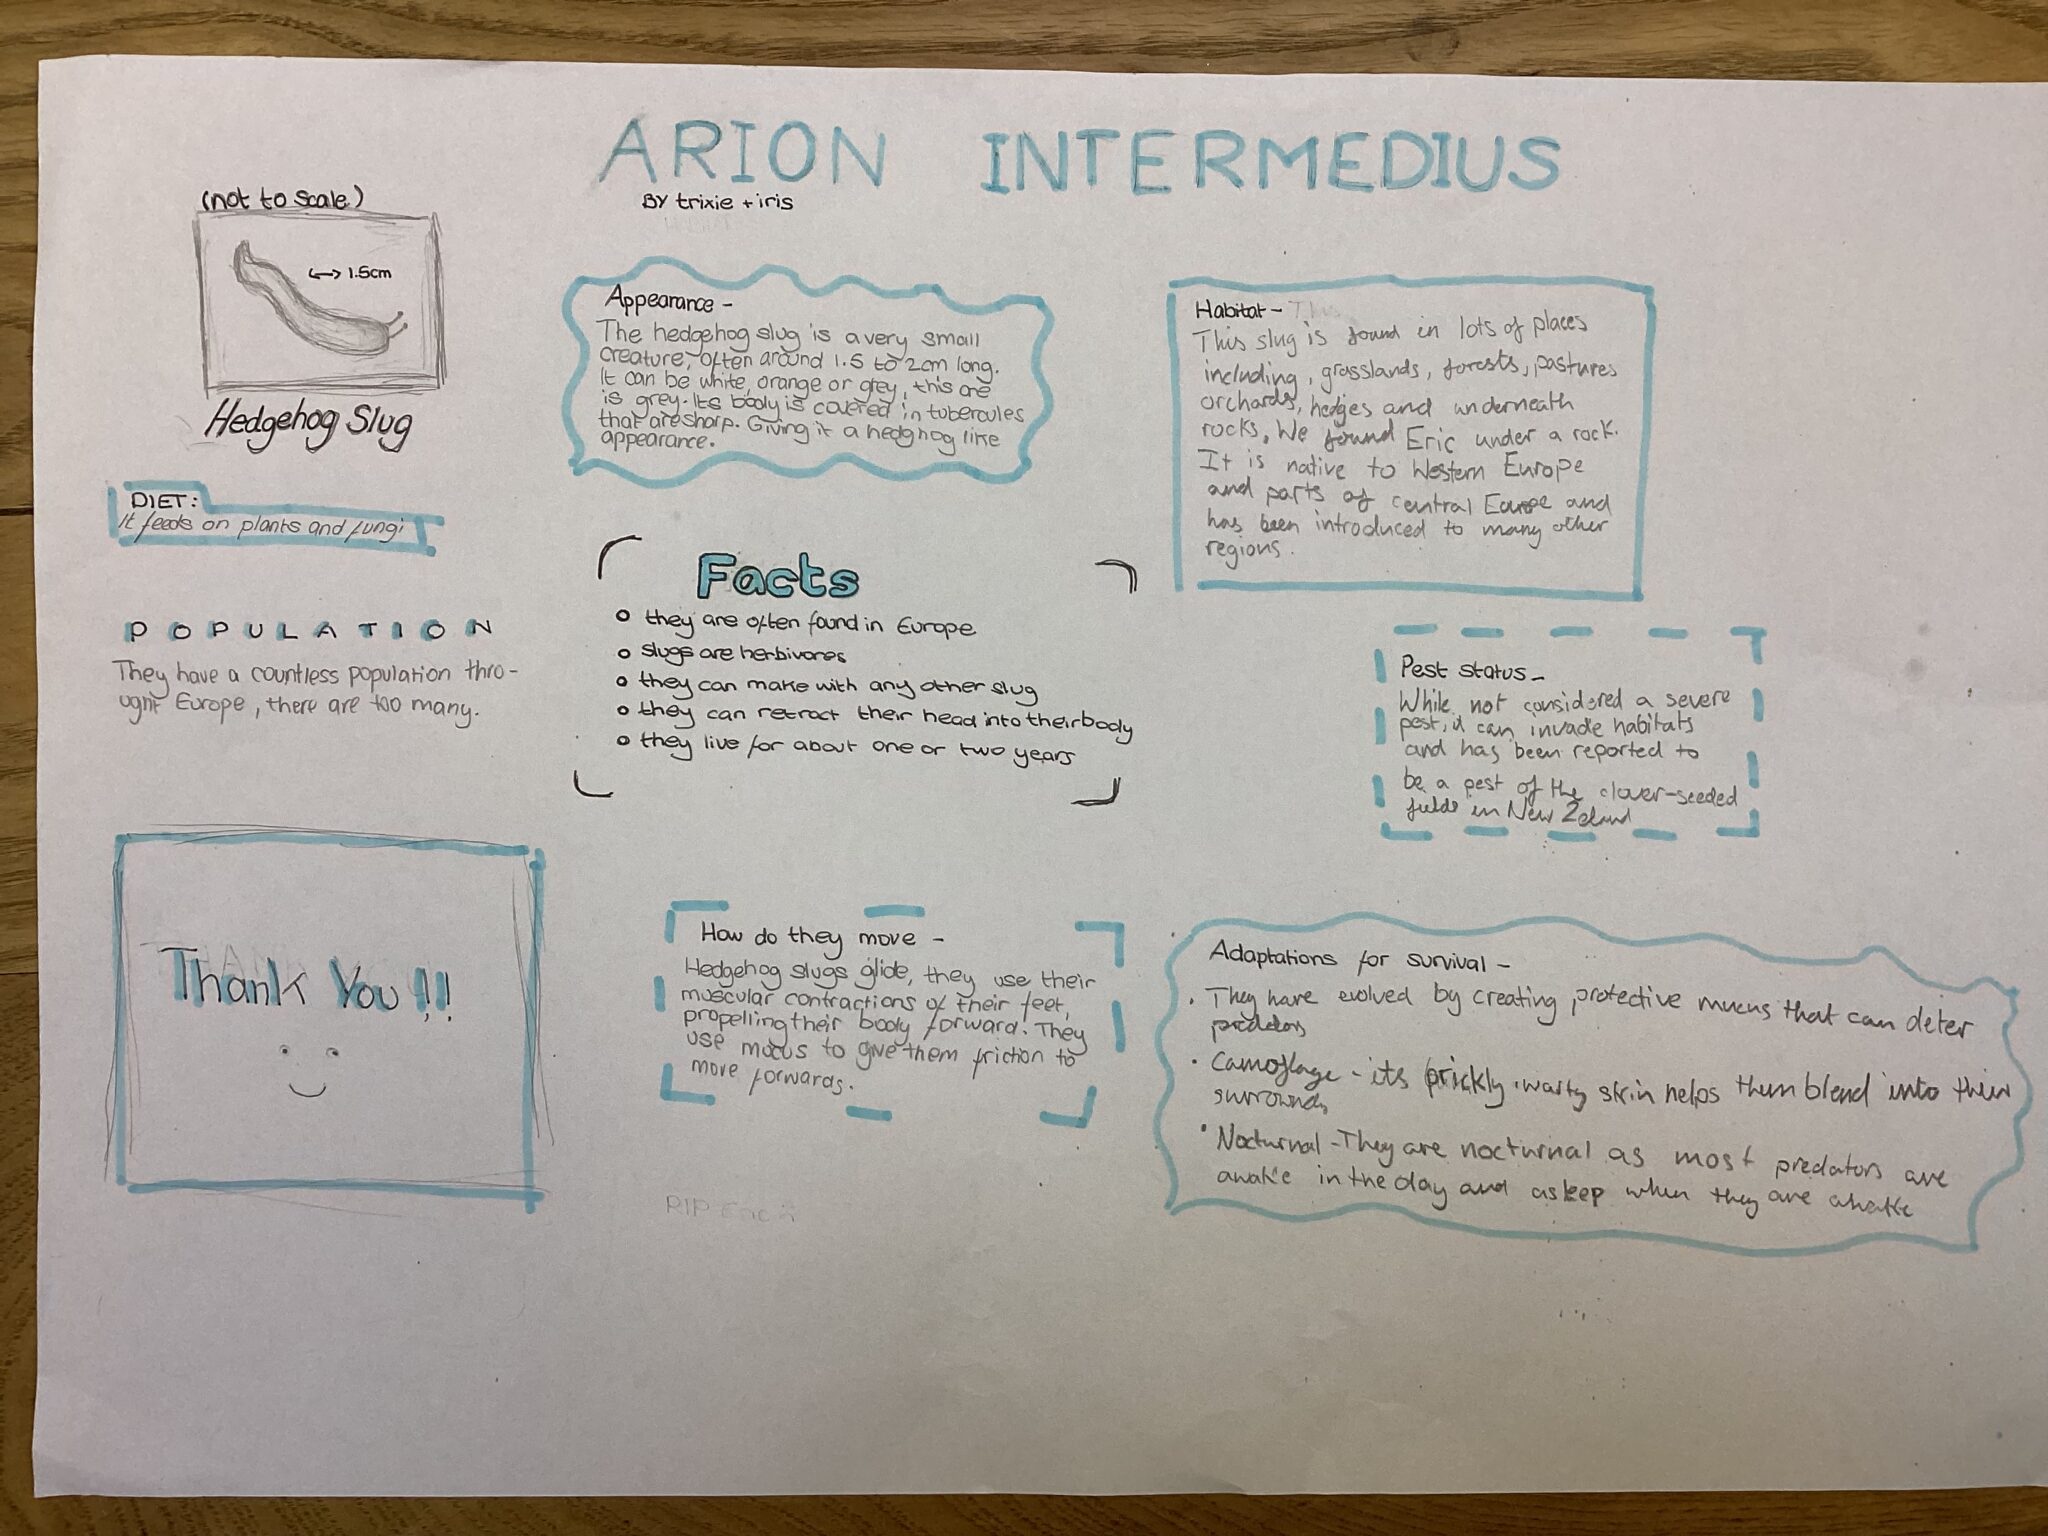 ARION INTERMEDIUS
BY trixie + iris
(not to scale)
<-> 1.5cm
Hedgehog Slug
DIET:
It feeds on plants and fungi
POPULATION
They have a countless population thro-
ught Europe, there are too many.
Appearance -
The hedgehog slug is a very small
creature, often around 1.5 to 2cm long.
It can be white, orange or grey, this are
is grey. Its body is covered in tubercules
that are sharp. Giving it a hedghog like
appearance.
Facts
they are often found in Europe
slugs are herbivores
they can make with any other slug
they can retract their head into their body
they live for about one or two years
Habitat - This
This slug is found in lots of places
including, grasslands, forests, pastures
orchards, hedges and underneath
rocks. We found Eric under a rock.
It is native to Western Europe
and parts of central Europe and
has been introduced to many other
regions.
Pest status -
While not considered a severe
pest, it can invade habitats
and has been reported to
be a pest of the clover-seeded
fields in New Zeland
Thank You!!
How do they move -
Hedgehog slugs glide, they use their
muscular contractions of their feet,
propelling their body forward. They
use mocus to give them friction to
move forwards.
RIP Eric
Adaptations for survival -
• They have evolved by creating protective mucus that can deter
predators
• Camoflage - its prickly, warty skin helps them blend into their
surrounds
• Nocturnal - They are nocturnal as most predators are
awake in the day and asleep when they are awake